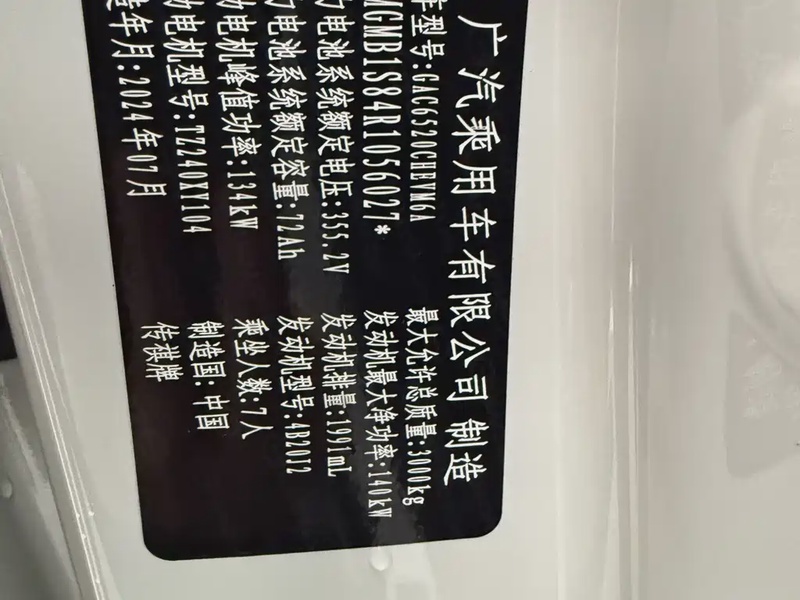 广汽乘用车有限公司 制造
车型号:GAC6520CHEVM6A 最大允许总质量:3000kg
MGMB1S84R1056027* 发动机最大净功率:140kW
力电池系统额定电压:355.2V 发动机排量:1991mL
力电池系统额定容量:72Ah 发动机型号:4B20J2
动电机峰值功率:134kW 乘坐人数:7人
动电机型号:TZ240XY104 制造国:中国
造年月:2024年07月 传祺牌